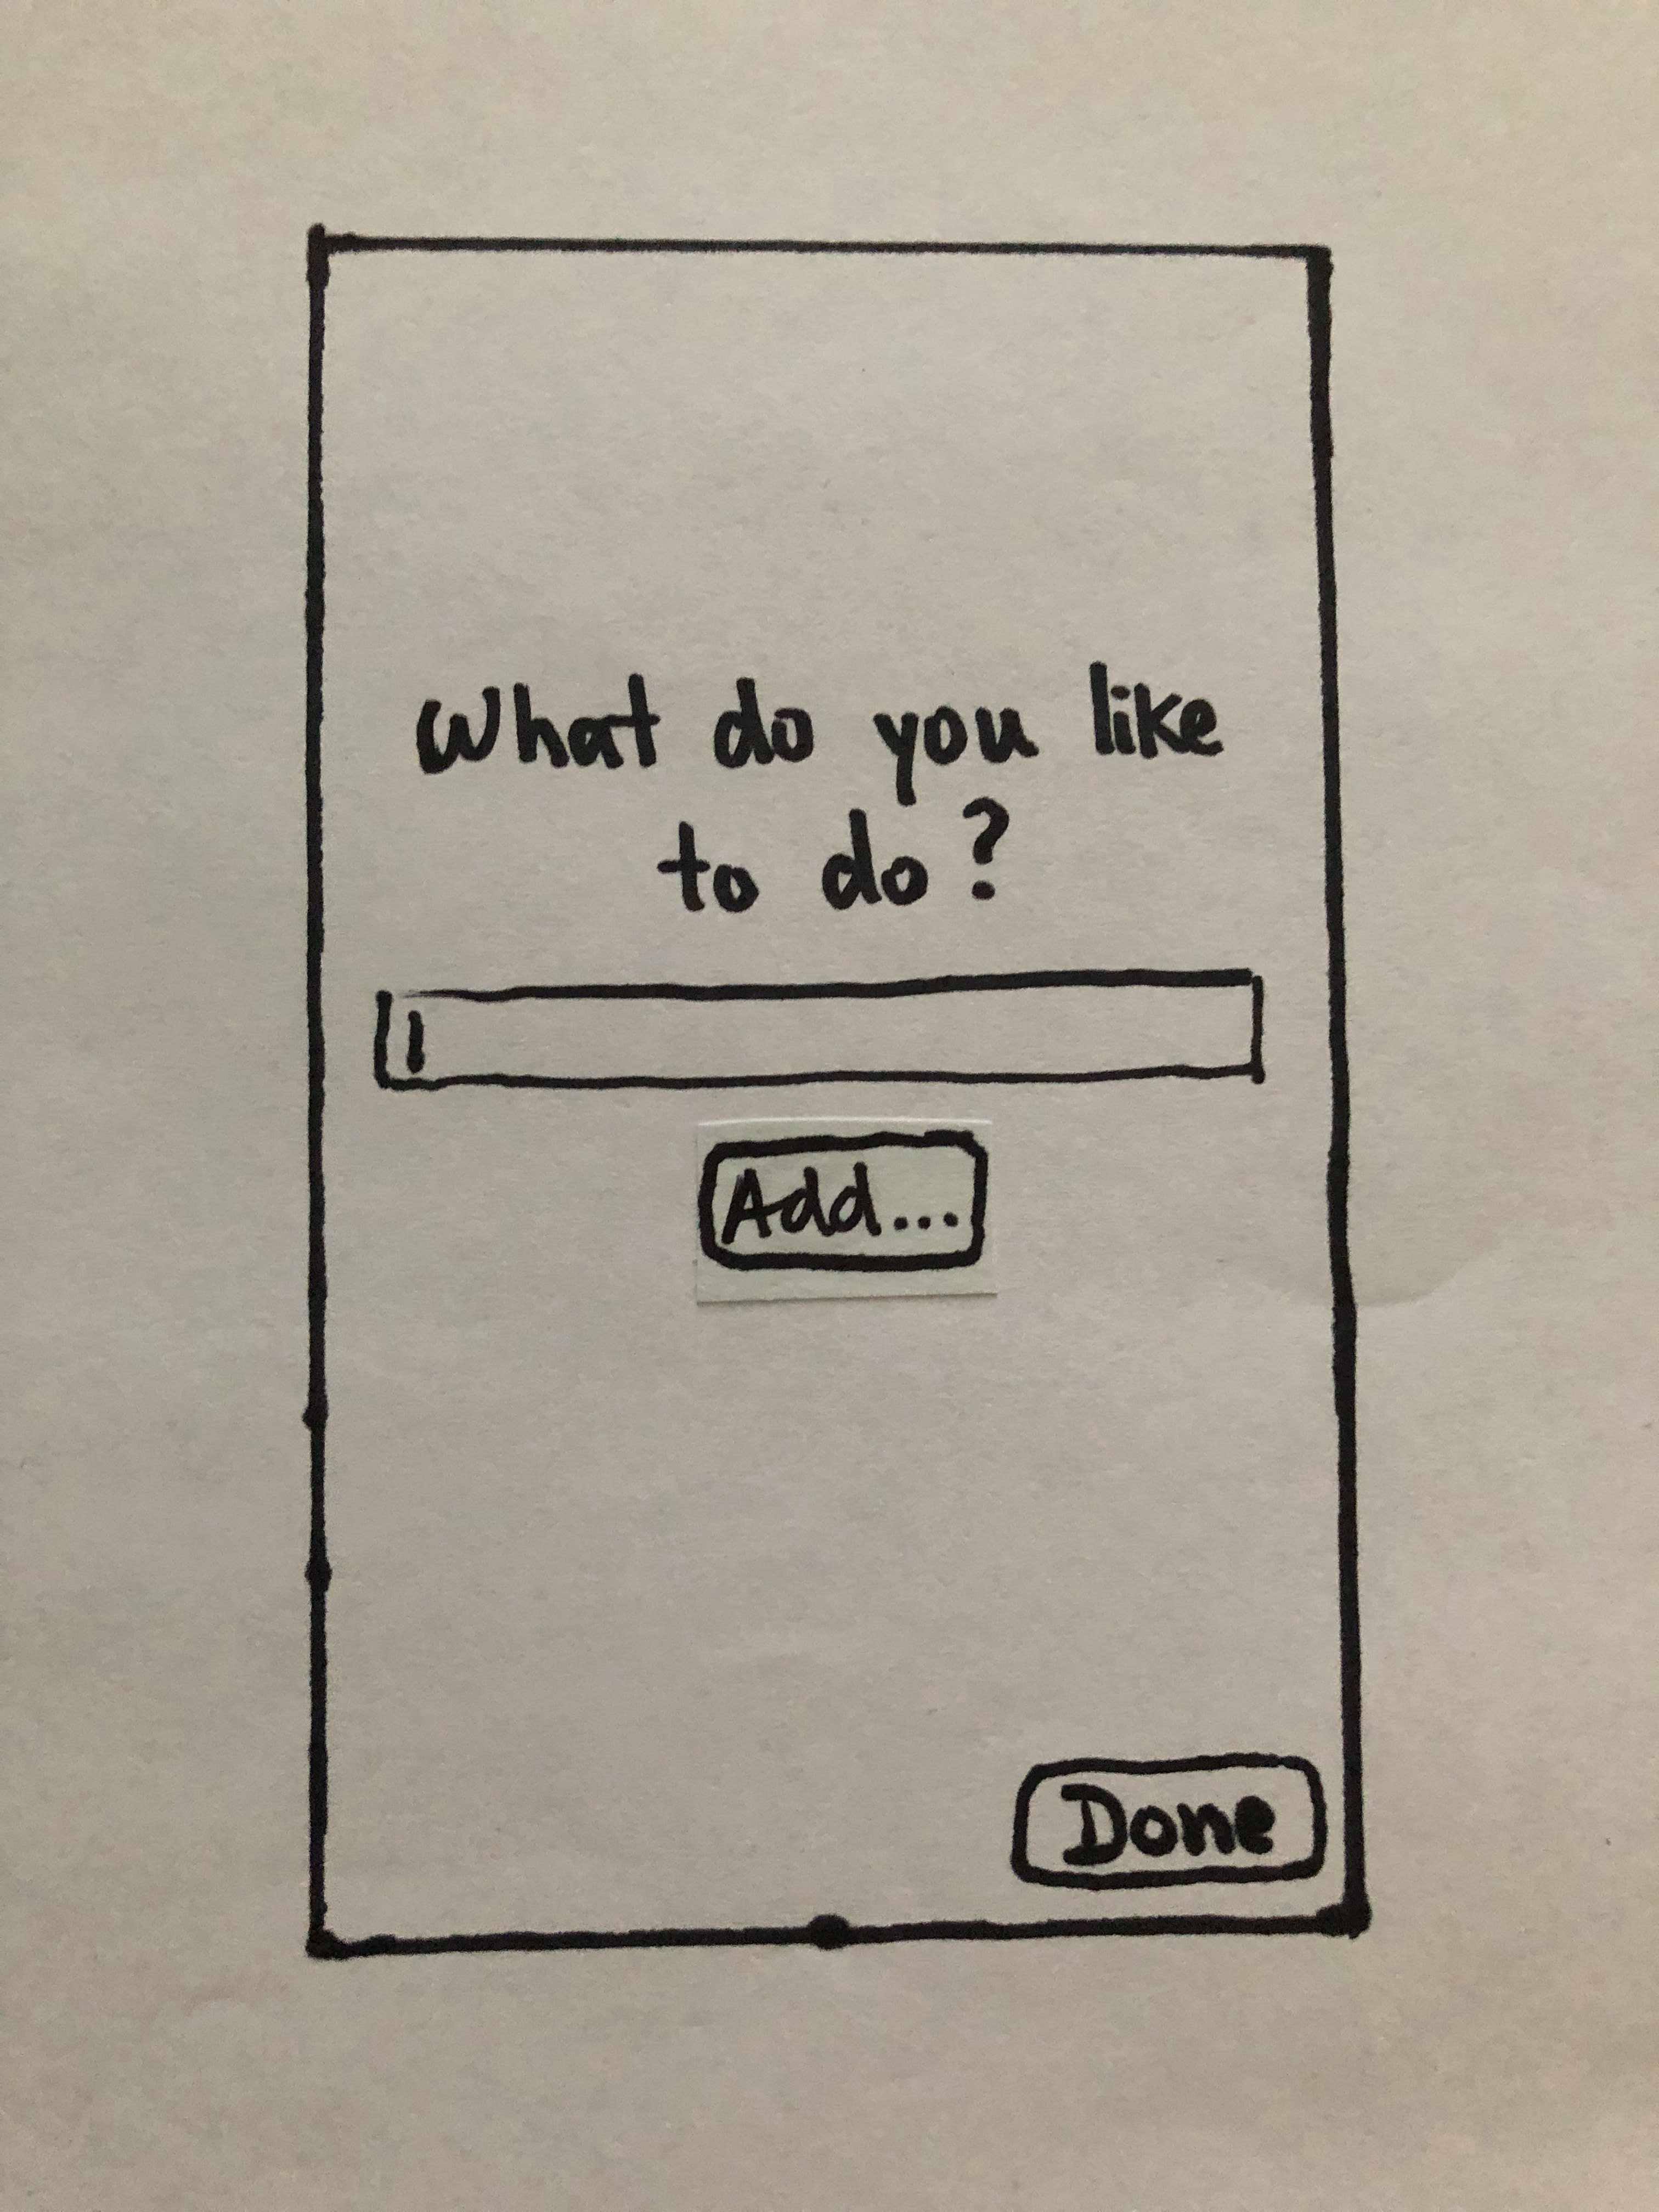 What do you like
to do?
Add...
Done